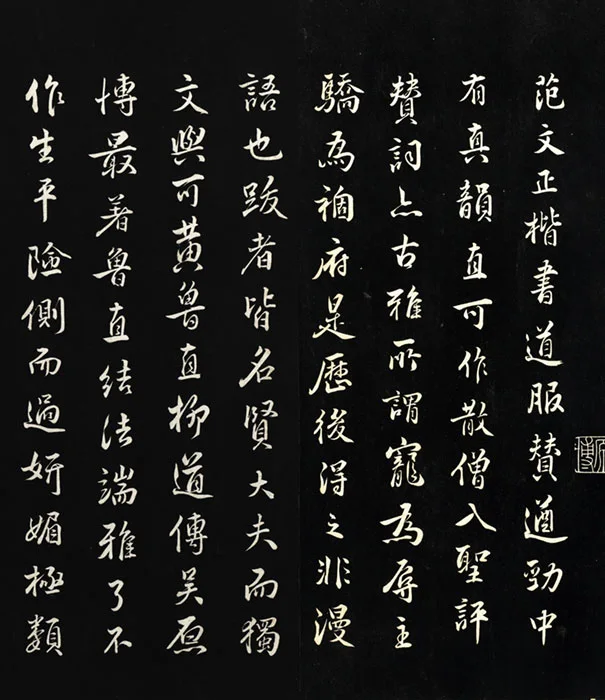 范文正楷書道服贊遒勁中
有真韻直可作散僧入聖評
贊詞亦古雅所謂寵為辱主
驕為禍府是歷後得之非漫
語也跋者皆名賢大夫而獨
文與可黃魯直柳道傳吳原
博最著魯直結法端雅了不
作生平險側而過妍媚極類